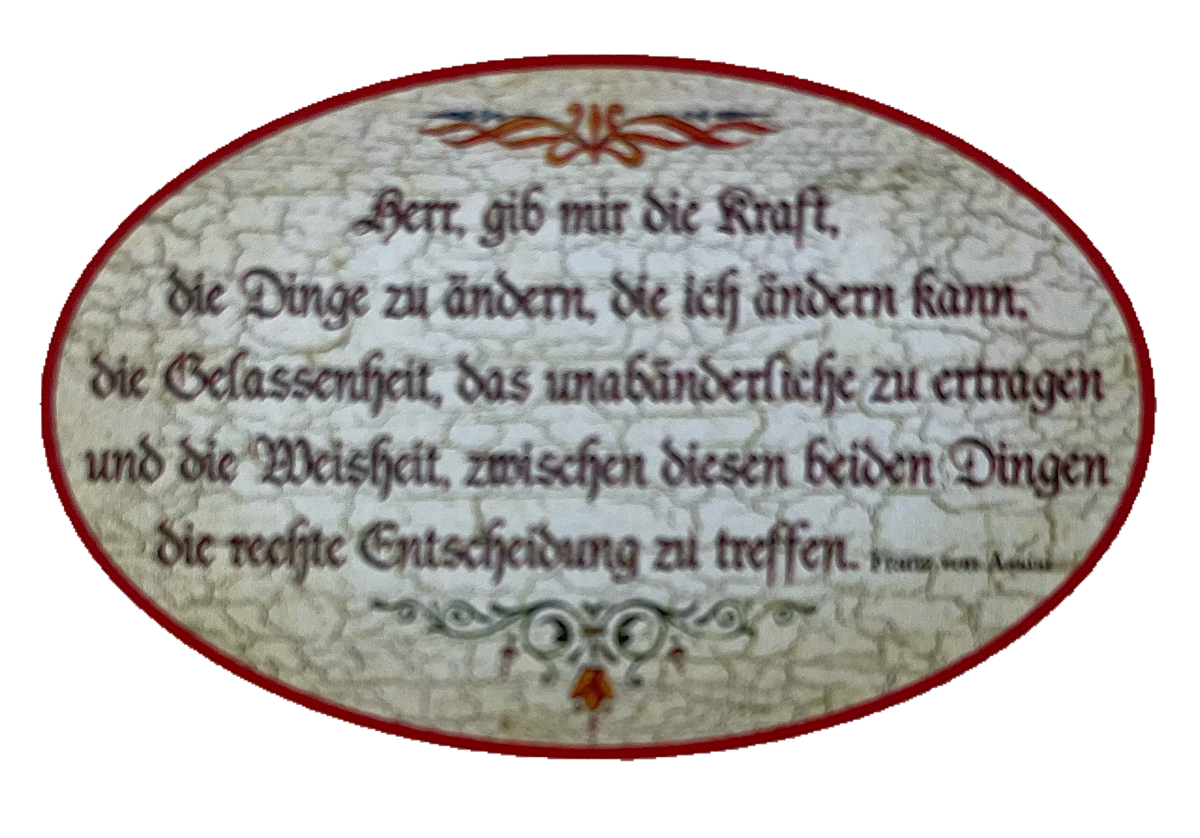 Herr, gib mir die Kraft,
die Dinge zu ändern, die ich ändern kann,
die Gelassenheit, das unabänderliche zu ertragen
und die Weisheit, zwischen diesen beiden Dingen
die rechte Entscheidung zu treffen. Franz von Assisi